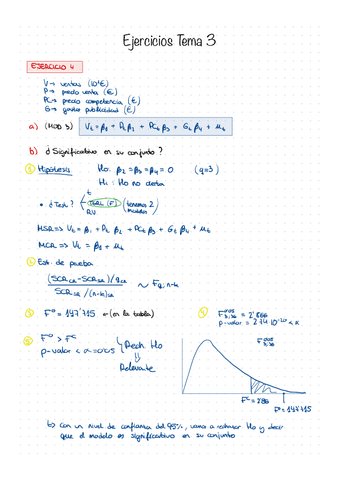 Ejercicios Tema 3
EJERCICIO 4
V → ventas (10⁶€)
P → precio venta (€)
PC → precio competencia (€)
G → gastos publicidad (€)
a) (MOD 3) Vt = β1 + Pt β2 + PCt β3 + Gt β4 + ut
b) ¿Significativo en su conjunto?
1 Hipótesis H0: β2 = β3 = β4 = 0 (q=3)
H1: H0 no cierta
t
• ¿Test? (F) (tenemos 2 modelos)
RV
MSR => Vt = β1 + Pt β2 + PCt β3 + Gt β4 + ut
MCR => Vt = β1 + ut
2 Est. de prueba
(SCR CR - SCR SR)/q CR
SCR SR/(n-k) SR
~ Fq; n-k
3 F⁰ = 147'715 → (en la tabla)
4 F 0'05 3;36 = 2'866
p-valor = 2'74 10⁻²⁰ < α
5 F⁰ > Fᶜ
p-valor < α = 0'05
Rech. H0
Relevante
F 0'05 3;36
Fᶜ = 2'86
F⁰ = 147'715
↳ Con un nivel de confianza del 95%, vamos a rechazar H0 y decir
que el modelo es significativo en su conjunto